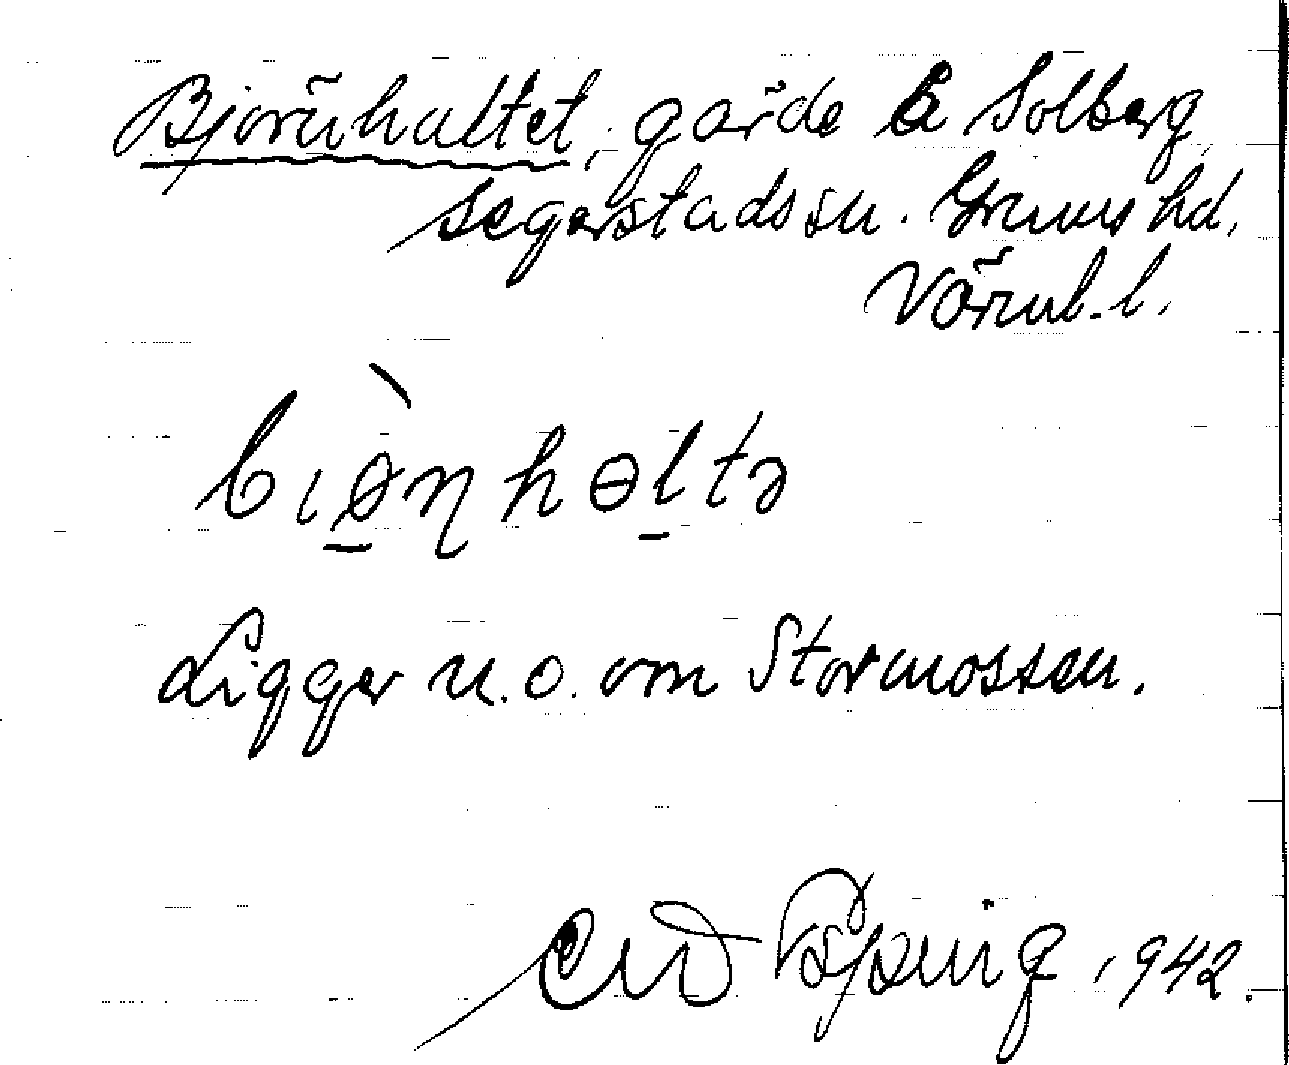 Björnhultet, gärde å Solberg
Segerstads sn. Grums hd,
Värml. l.
bıø̀ɳhɵltə
Ligger n. o. om Stormossen.
1942.